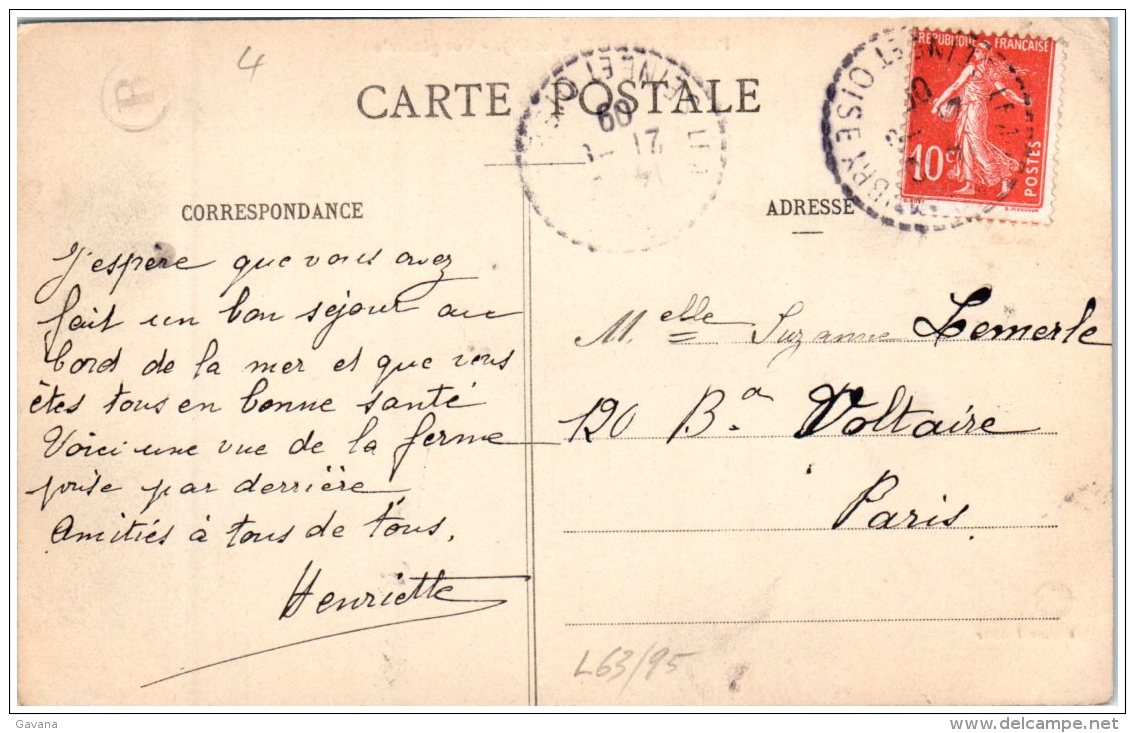 4
B
CARTE POSTALE
SEINE ET OISE
09
21
RÉPUBLIQUE FRANÇAISE
10c
POSTES
ET OISE
CORRESPONDANCE
J'espère que vous avez
fait un bon séjour au
bord de la mer et que vous
êtes tous en bonne santé
Voici une vue de la ferme
prise par derrière
Amitiés à tous de tous.
Henriette
ADRESSE
Melle Suzanne Lemerle
120 Bd. Voltaire
Paris
L63/95
Gavana
delcampe.net